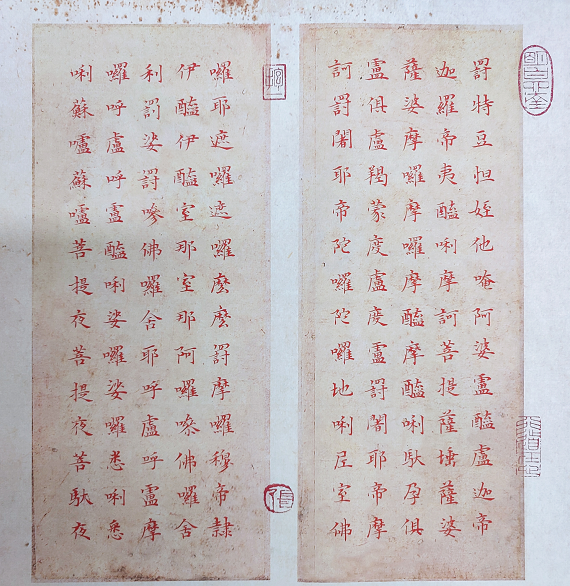 罸特豆怛姪他唵阿婆盧醯盧迦帝
迦羅帝夷醯唎摩訶菩提薩埵薩婆
薩婆摩囉摩囉摩醯摩醯唎馱孕俱
盧俱盧羯蒙度盧度盧罸闍耶帝摩
訶罸闍耶帝陀囉陀囉地唎尼室佛
囉耶遮囉遮囉麼麼罸摩囉穆帝隸
伊醯伊醯室那室那阿囉嘇佛囉舍
利罸娑罸嘇佛囉舍耶呼盧呼盧摩
囉呼盧呼盧醯唎娑囉娑囉悉唎悉
唎蘇嚧蘇嚧菩提夜菩提夜菩馱夜